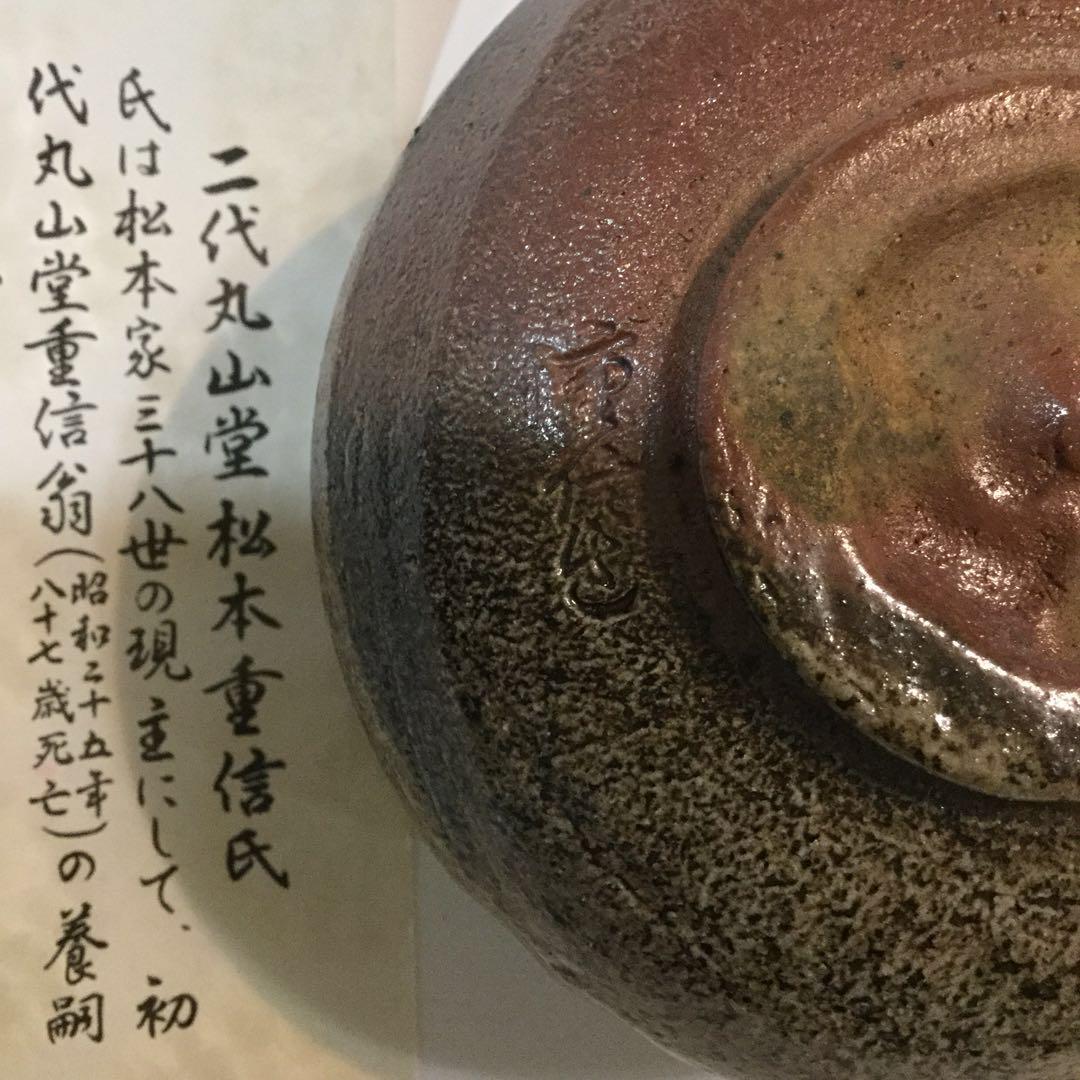 二代丸山堂松本重信氏
氏は松本家三十八世の現主にして、初
代丸山堂重信翁(昭和二十五年八十七歳死亡)の養嗣